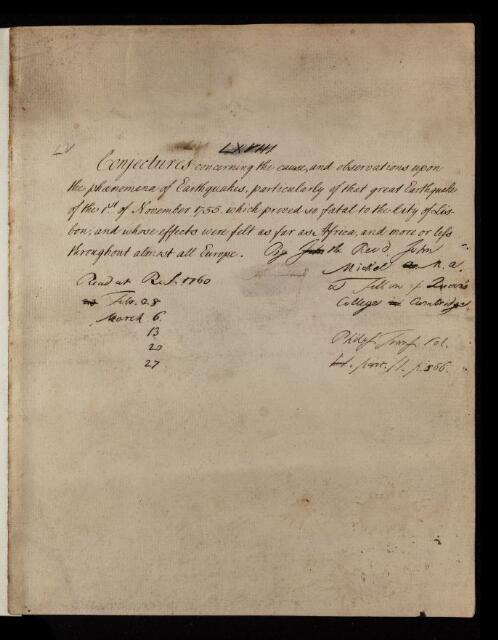 LXVIII
LV
Conjectures concerning the cause, and observations upon
the phænomena of Earthquakes, particularly of that great Earthquake
of the 1st of November 1755. which proved so fatal to the City of Lis-
bon, and whose effects were felt as far as Africa, and more or less
throughout almost all Europe. By the Revd. John
Michel M.A.
Fellow of Queen's
College Cambridge.
Read at R.S. 1760
Feb. 28
March 6.
13
20
27
Philos. Trans. Vol.
part. p. 566.